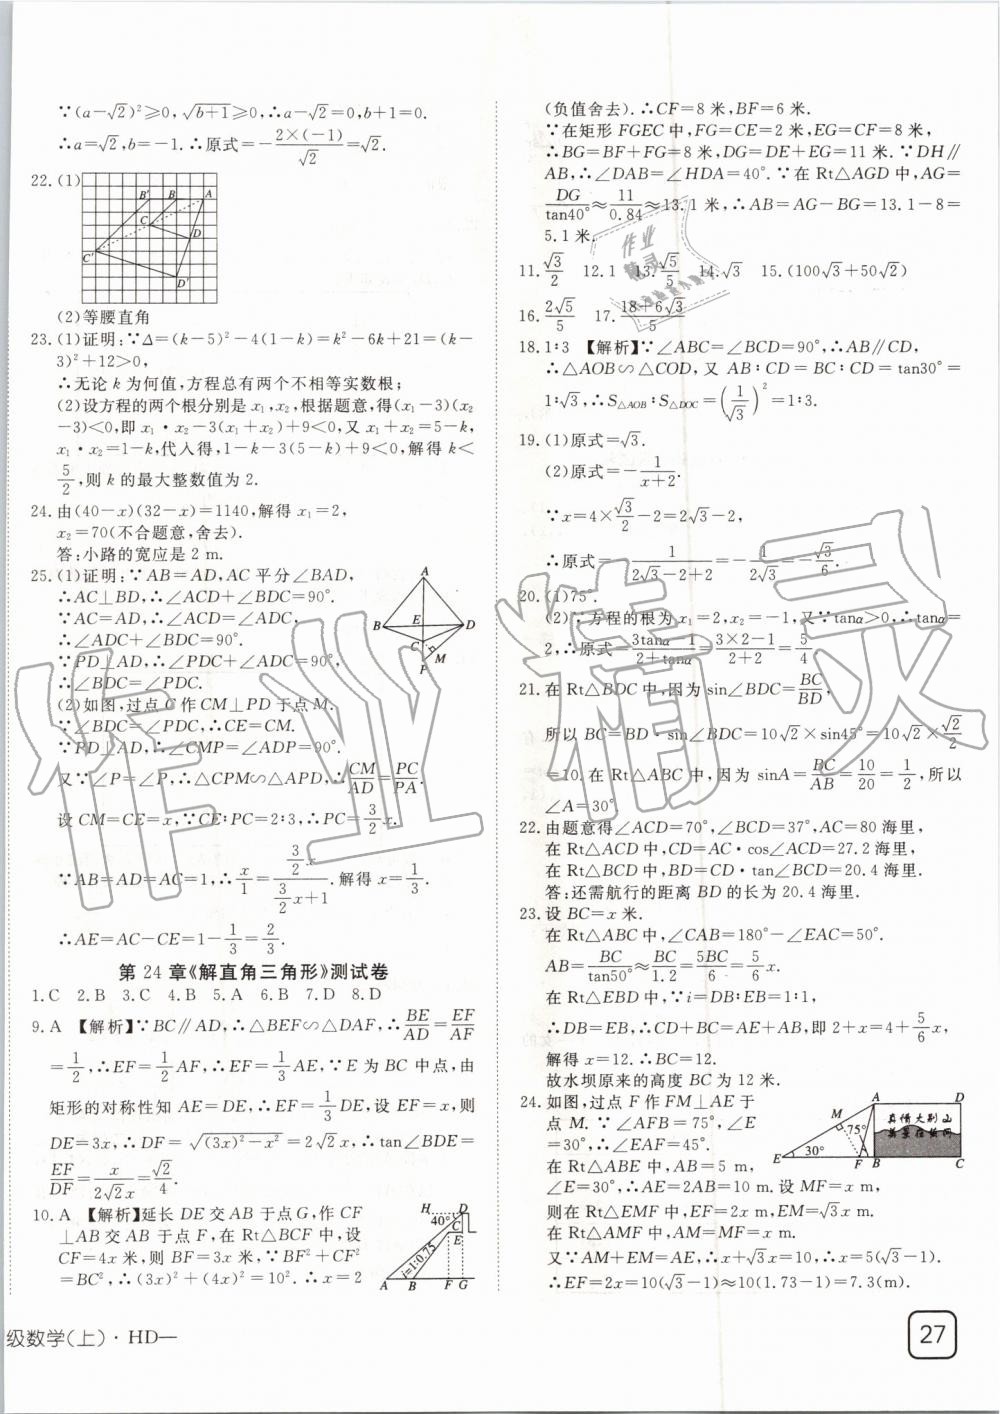 ∵(a-√2)²≥0,√(b+1)≥0,∴a-√2=0,b+1=0.
∴a=√2,b=-1.∴原式=-2×(-1)/√2=√2.
22.(1)
B′ B A
C
D
C′
D′
(2)等腰直角
23.(1)证明:∵Δ=(k-5)²-4(1-k)=k²-6k+21=(k-
3)²+12>0,
∴无论 k 为何值,方程总有两个不相等实数根;
(2)设方程的两个根分别是 x₁,x₂,根据题意,得(x₁-3)(x₂
-3)<0,即 x₁·x₂-3(x₁+x₂)+9<0,又 x₁+x₂=5-k,
x₁·x₂=1-k,代入得,1-k-3(5-k)+9<0,解得 k<
5/2,则 k 的最大整数值为 2.
24.由(40-x)(32-x)=1140,解得 x₁=2,
x₂=70(不合题意,舍去).
答:小路的宽应是 2 m.
25.(1)证明:∵AB=AD,AC 平分∠BAD,
∴AC⊥BD,∴∠ACD+∠BDC=90°.
∵AC=AD,∴∠ACD=∠ADC,
∴∠ADC+∠BDC=90°.
∵PD⊥AD,∴∠PDC+∠ADC=90°,
∴∠BDC=∠PDC.
(2)如图,过点 C 作 CM⊥PD 于点 M.
∵∠BDC=∠PDC,∴CE=CM.
∵PD⊥AD,∴∠CMP=∠ADP=90°.
又∵∠P=∠P,∴△CPM∽△APD,∴CM/AD=PC/PA.
设 CM=CE=x,∵CE∶PC=2∶3,∴PC=3/2x.
∵AB=AD=AC=1,∴x/1=(3/2x)/(3/2x+1).解得 x=1/3.
∴AE=AC-CE=1-1/3=2/3.
A
B E D
C
M
P
第 24 章《解直角三角形》测试卷
1.C 2.B 3.C 4.B 5.A 6.B 7.D 8.D
9.A 【解析】∵BC∥AD,∴△BEF∽△DAF,∴BE/AD=EF/AF
=1/2,∴EF=1/2AF,∴EF=1/3AE.∵E 为 BC 中点,由
矩形的对称性知 AE=DE,∴EF=1/3DE,设 EF=x,则
DE=3x,∴DF=√((3x)²-x²)=2√2x,∴tan∠BDE=
EF/DF=x/(2√2x)=√2/4.
10.A 【解析】延长 DE 交 AB 于点 G,作 CF
⊥AB 交 AB 于点 F,在 Rt△BCF 中,设
CF=4x 米,则 BF=3x 米,∵BF²+CF²
=BC²,∴(3x)²+(4x)²=10².∴x=2
H D
40° C
E
i=1:0.75
A B F G
(负值舍去).∴CF=8 米,BF=6 米.
∵在矩形 FGEC 中,FG=CE=2 米,EG=CF=8 米,
∴BG=BF+FG=8 米,DG=DE+EG=11 米.∵DH∥
AB,∴∠DAB=∠HDA=40°.∵在 Rt△AGD 中,AG=
DG/tan40°≈11/0.84≈13.1 米,∴AB=AG-BG=13.1-8=
5.1 米.
11.√3/2 12.1 13.√5/5 14.√3 15.(100√3+50√2)
16.2√5/5 17.(18+6√3)/5
18.1∶3 【解析】∵∠ABC=∠BCD=90°,∴AB∥CD,
∴△AOB∽△COD,又 AB∶CD=BC∶CD=tan30°=
1∶√3,∴S△AOB∶S△DOC=(1/√3)²=1∶3.
19.(1)原式=√3.
(2)原式=-1/(x+2).
∵x=4×√3/2-2=2√3-2,
∴原式=-1/(2√3-2+2)=-1/(2√3)=-√3/6.
20.(1)75°.
(2)∵方程的根为 x₁=2,x₂=-1,又∵tanα>0,∴tanα=
2,∴原式=(3tanα-1)/(2+tanα)=(3×2-1)/(2+2)=5/4
21.在 Rt△BDC 中,因为 sin∠BDC=BC/BD,
所以 BC=BD·sin∠BDC=10√2×sin45°=10√2×√2/2
=10.在 Rt△ABC 中,因为 sinA=BC/AB=10/20=1/2,所以
∠A=30°.
22.由题意得∠ACD=70°,∠BCD=37°,AC=80 海里,
在 Rt△ACD 中,CD=AC·cos∠ACD=27.2 海里,
在 Rt△BCD 中,BD=CD·tan∠BCD=20.4 海里.
答:还需航行的距离 BD 的长为 20.4 海里.
23.设 BC=x 米.
在 Rt△ABC 中,∠CAB=180°-∠EAC=50°.
AB=BC/tan50°≈BC/1.2=5BC/6=5/6x.
在 Rt△EBD 中,∵i=DB∶EB=1∶1,
∴DB=EB,∴CD+BC=AE+AB,即 2+x=4+5/6x,
解得 x=12.∴BC=12.
故水坝原来的高度 BC 为 12 米.
24.如图,过点 F 作 FM⊥AE 于
点 M.∵∠AFB=75°,∠E
=30°,∴∠EAF=45°.
在 Rt△ABE 中,AB=5 m,
∠E=30°,∴AE=2AB=10 m.设 MF=x m,
则在 Rt△EMF 中,EF=2x m,EM=√3x m.
在 Rt△AMF 中,AM=MF=x m.
又∵AM+EM=AE,∴x+√3x=10,∴x=5(√3-1).
∴EF=2x=10(√3-1)≈10(1.73-1)=7.3(m).
A D
M
75°
30°
E F B C
级数学(上)·HD—
27
作业精灵